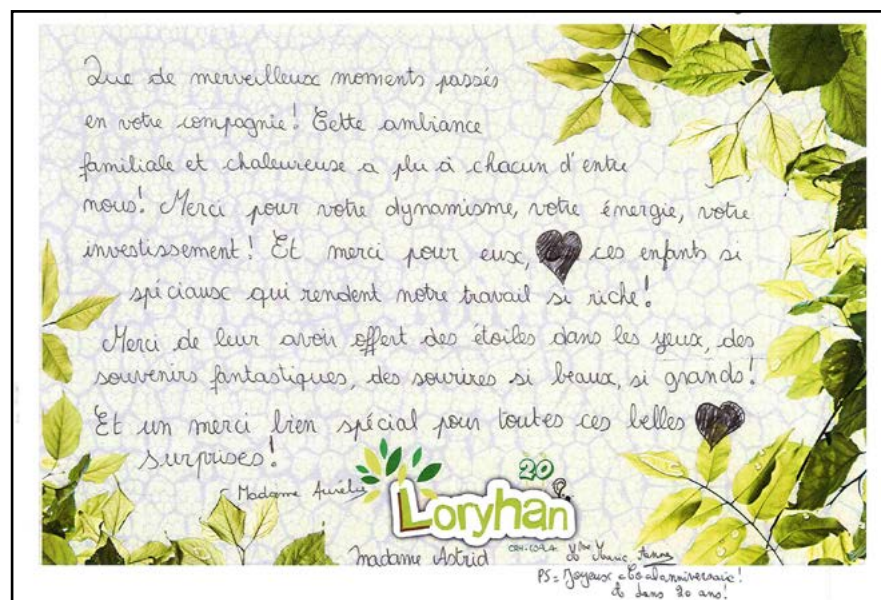 Que de merveilleux moments passés
en votre compagnie! Cette ambiance
familiale et chaleureuse a plu à chacun d'entre
nous! Merci pour votre dynamisme, votre énergie, votre
investissement! Et merci pour eux, ces enfants si
spéciaux qui rendent notre travail si riche!
Merci de leur avoir offert des étoiles dans les yeux, des
souvenirs fantastiques, des sourires si beaux, si grands!
Et un merci bien spécial pour toutes ces belles
surprises!
Madame Aurélie
20
Loryhan
Madame Astrid
Mme Marie Anne
PS: Joyeux
dans 20 ans!